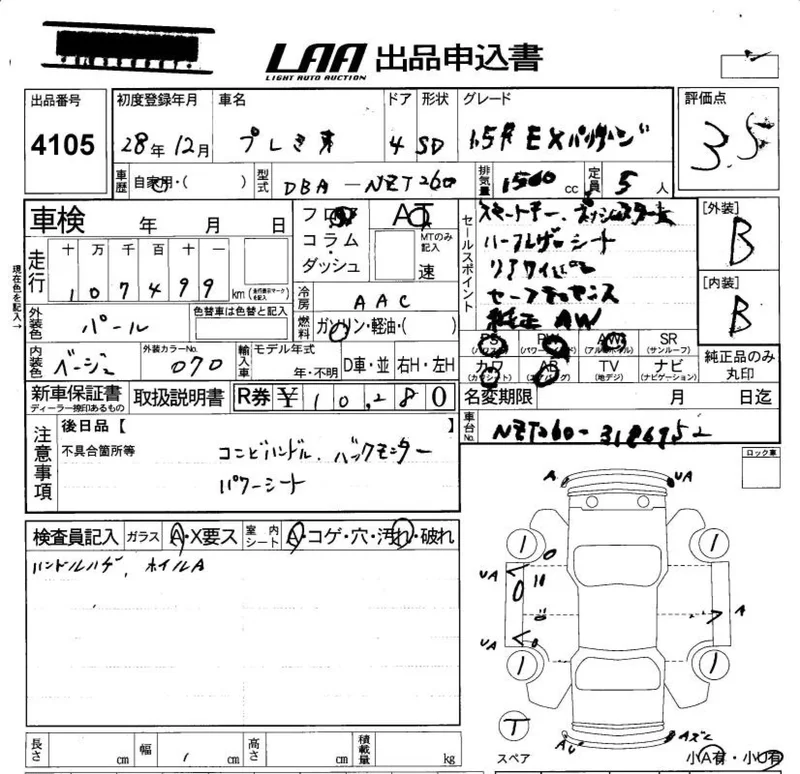 LAA 出品申込書
LIGHT AUTO AUCTION
出品番号 初度登録年月 車名 ドア 形状 グレード 評価点
4105 28年 12月 4 SD 1.5F EX 3.5
車歴 自家用・( ) 型式 DBA-NZT260 排気量 1500cc 定員 5人
車検 年 月 日 フロア AT
コラム・ダッシュ MTのみ記入 速
セールスポイント スマートキー、プッシュスタート
ハーフレザーシート
純正 AW
[外装] B
[内装] B
現在色を記入→
走行 十 万 千 百 十 一
107499 km (走行距離マークを記入)
冷房 AAC
燃料 ガソリン・軽油・( )
外装色 パール 色替車は色替と記入
内装色 ベージュ 外装カラーNo. 070 輸入車 モデル年式 年・不明 D車・並 右H・左H
PS (パワステ) PW (パワーウインドウ) AW (アルミホイル) SR (サンルーフ)
カワ (カワシート) AB (エアバッグ) TV (地デジ) ナビ (ナビゲーション)
純正品のみ丸印
新車保証書 ディーラー捺印あるもの 取扱説明書 R券 ¥10,280
名変期限 月 日迄
車台No. NZT260-3186952
注意事項 後日品【 】
不具合箇所等 コンビハンドル、バックモニター
パワーシート
ロック車
検査員記入 ガラス A・X要ス 室内シート A・コゲ・穴・汚れ・破れ
ハンドルハゲ、ホイルA
A UA
UA A
UA
スペア T
小A有・小U有
長さ cm 幅 cm 高さ cm 積載量 kg